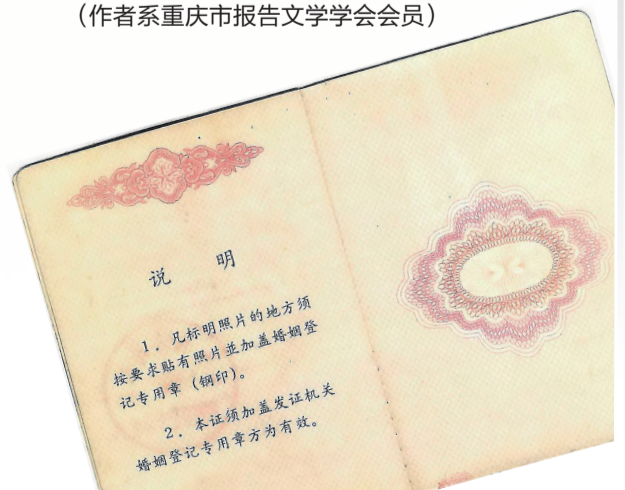 （作者系重庆市报告文学学会会员）
说 明
1．凡标明照片的地方须
按要求贴有照片並加盖婚姻登
记专用章（钢印）。
2．本证须加盖发证机关
婚姻登记专用章方为有效。